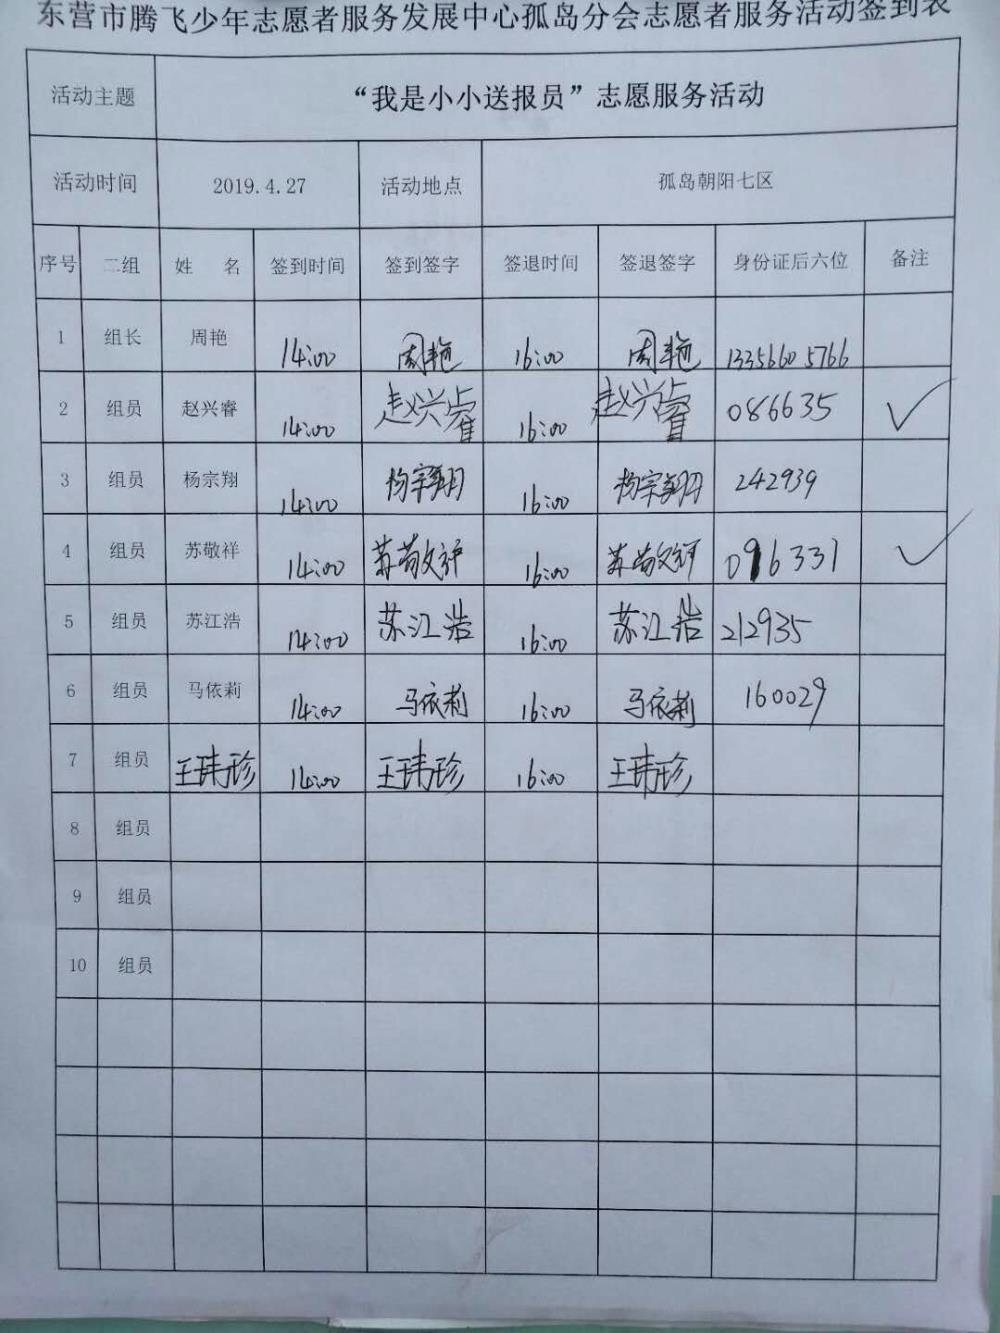 东营市腾飞少年志愿者服务发展中心孤岛分会志愿者服务活动签到表
活动主题 “我是小小送报员”志愿服务活动
活动时间 2019.4.27 活动地点 孤岛朝阳七区
序号 二组 姓 名 签到时间 签到签字 签退时间 签退签字 身份证后六位 备注
1 组长 周艳 14:00 周艳 16:00 周艳 13356605766
2 组员 赵兴睿 14:00 赵兴睿 16:00 赵兴睿 086635 ✓
3 组员 杨宗翔 14:00 杨宗翔 16:00 杨宗翔 242939
4 组员 苏敬祥 14:00 苏敬祥 16:00 苏敬祥 096331 ✓
5 组员 苏江浩 14:00 苏江浩 16:00 苏江浩 212935
6 组员 马依莉 14:00 马依莉 16:00 马依莉 160029
7 组员 王玮珍 14:00 王玮珍 16:00 王玮珍
8 组员
9 组员
10 组员